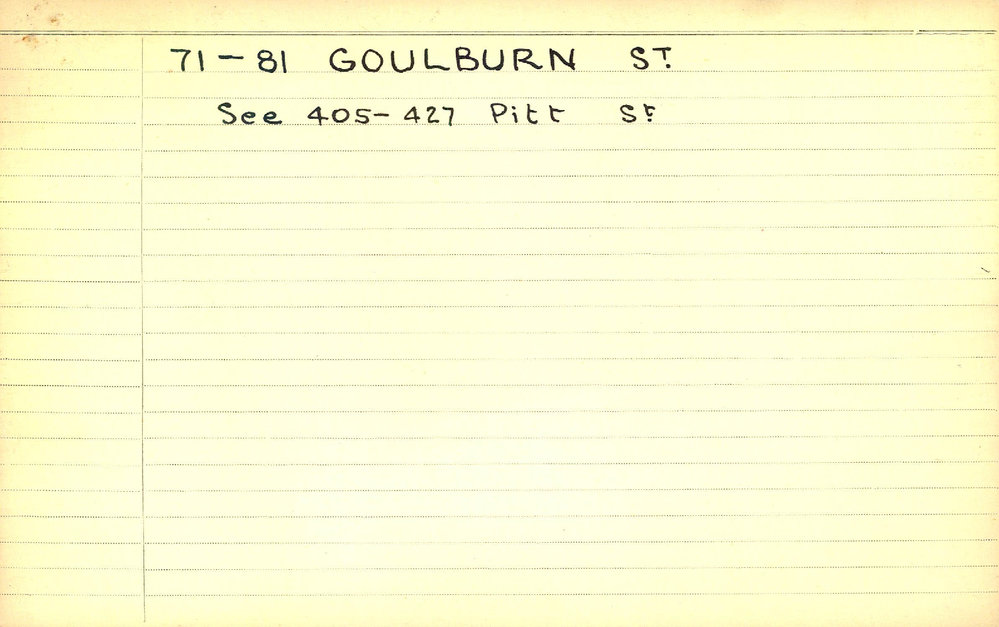 71-81 GOULBURN ST.
See 405-427 Pitt St.